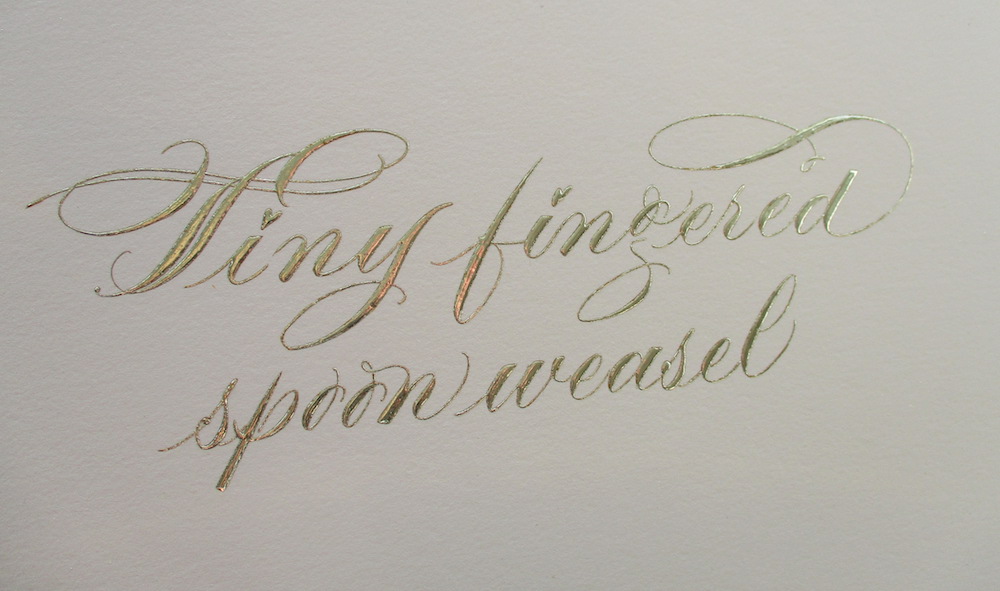 Tiny fingered
spoon weasel